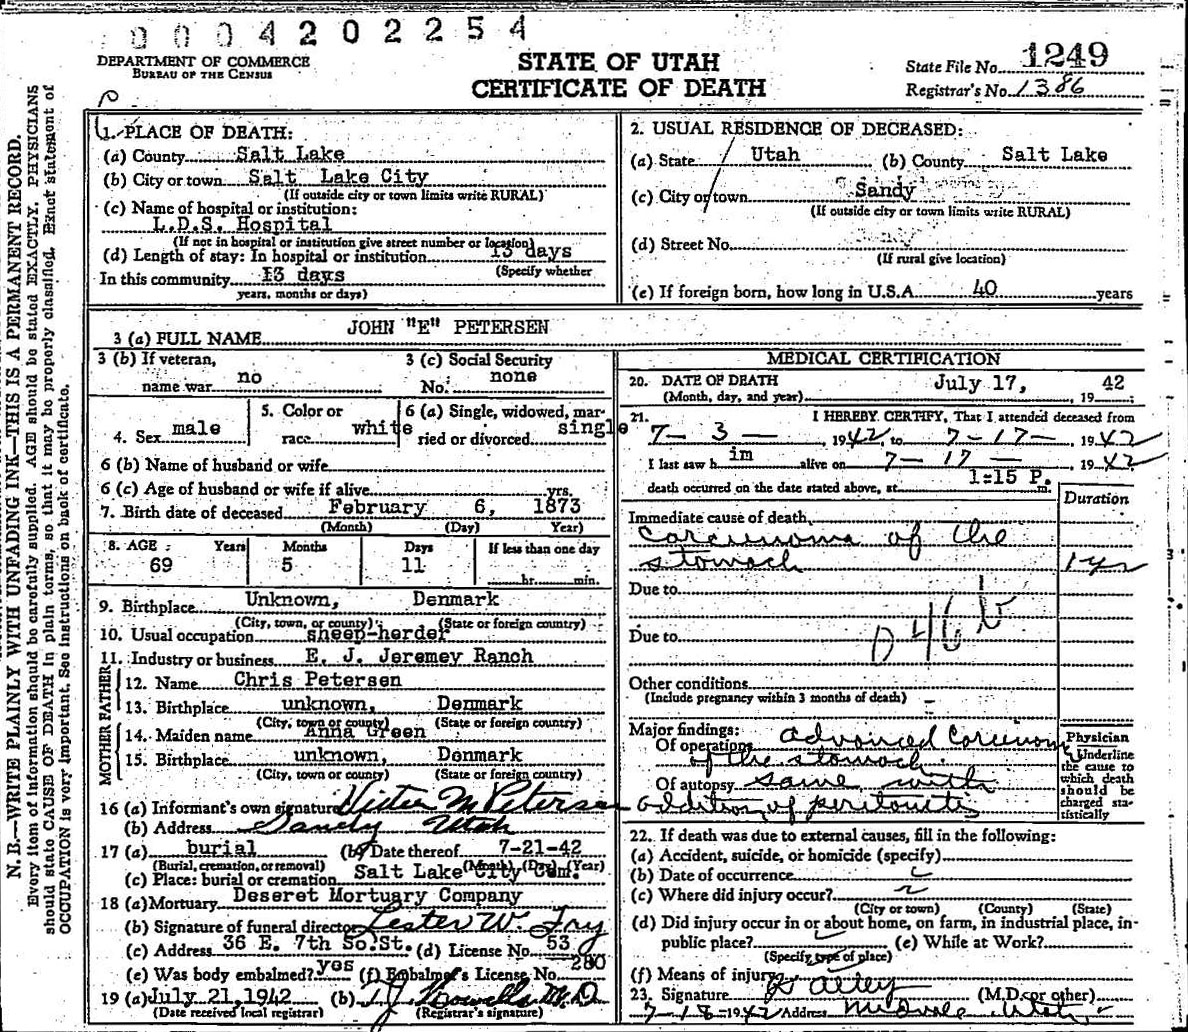 0004202254
DEPARTMENT OF COMMERCE
BUREAU OF THE CENSUS
STATE OF UTAH
CERTIFICATE OF DEATH
State File No. 1249
Registrar's No. 1386
N. B.—WRITE PLAINLY WITH UNFADING INK—THIS IS A PERMANENT RECORD.
Every item of information should be carefully supplied. AGE should be stated EXACTLY. PHYSICIANS
should state CAUSE OF DEATH in plain terms, so that it may be properly classified. Exact statement of
OCCUPATION is very important. See instructions on back of certificate.
1. PLACE OF DEATH:
(a) County Salt Lake
(b) City or town Salt Lake City
(If outside city or town limits write RURAL)
(c) Name of hospital or institution:
L.D.S. Hospital
(If not in hospital or institution give street number or location)
(d) Length of stay: In hospital or institution 13 days
(Specify whether
In this community 13 days
years, months or days)
2. USUAL RESIDENCE OF DECEASED:
(a) State Utah (b) County Salt Lake
(c) City or town Sandy
(If outside city or town limits write RURAL)
(d) Street No.
(If rural give location)
(e) If foreign born, how long in U.S.A. 40 years
3 (a) FULL NAME JOHN "E" PETERSEN
3 (b) If veteran,
name war no
3 (c) Social Security
No. none
4. Sex male
5. Color or
race white
6 (a) Single, widowed, mar-
ried or divorced single
6 (b) Name of husband or wife
6 (c) Age of husband or wife if alive yrs.
7. Birth date of deceased February 6, 1873
(Month) (Day) Year)
8. AGE Years Months Days If less than one day
69 5 11
hr. min.
9. Birthplace Unknown, Denmark
(City, town, or county) (State or foreign country)
10. Usual occupation sheep-herder
11. Industry or business E. J. Jeremey Ranch
FATHER
12. Name Chris Petersen
13. Birthplace unknown, Denmark
(City, town or county) (State or foreign country)
MOTHER
14. Maiden name Anna Green
15. Birthplace unknown, Denmark
(City, town or county) (State or foreign country)
16 (a) Informant's own signature Victor M Petersen
(b) Address Sandy Utah
17 (a) burial (b) Date thereof 7-21-42
(Burial, cremation, or removal) (Month) (Day) (Year)
(c) Place: burial or cremation Salt Lake City Cem.
18 (a) Mortuary Deseret Mortuary Company
(b) Signature of funeral director Lester W. Fry
(c) Address 36 E. 7th So. St. (d) License No. 53
(e) Was body embalmed? yes (f) Embalmer's License No. 280
19 (a) July 21, 1942 (b) T.J. Howells M.D.
(Date received local registrar) (Registrar's signature)
MEDICAL CERTIFICATION
20. DATE OF DEATH July 17, 1942
(Month, day, and year)
21. I HEREBY CERTIFY, That I attended deceased from
7-3-1942, to 7-17-, 1942
I last saw him alive on 7-17-, 1942
death occurred on the date stated above, at 1:15 P. m.
Duration
Immediate cause of death
carcinoma of the
stomach 1 yr
Due to
Due to
046b
Other conditions
(Include pregnancy within 3 months of death)
Major findings:
Of operations advanced Carcinoma
of the stomach.
Of autopsy same with
addition of peritonitis
Physician
Underline
the cause to
which death
should be
charged sta-
tistically
22. If death was due to external causes, fill in the following:
(a) Accident, suicide, or homicide (specify)
(b) Date of occurrence
(c) Where did injury occur?
(City or town) (County) (State)
(d) Did injury occur in or about home, on farm, in industrial place, in-
public place? (e) While at Work?
(Specify type of place)
(f) Means of injury
23. Signature (M.D. or other)
7-18-1942 Address Midvale Utah